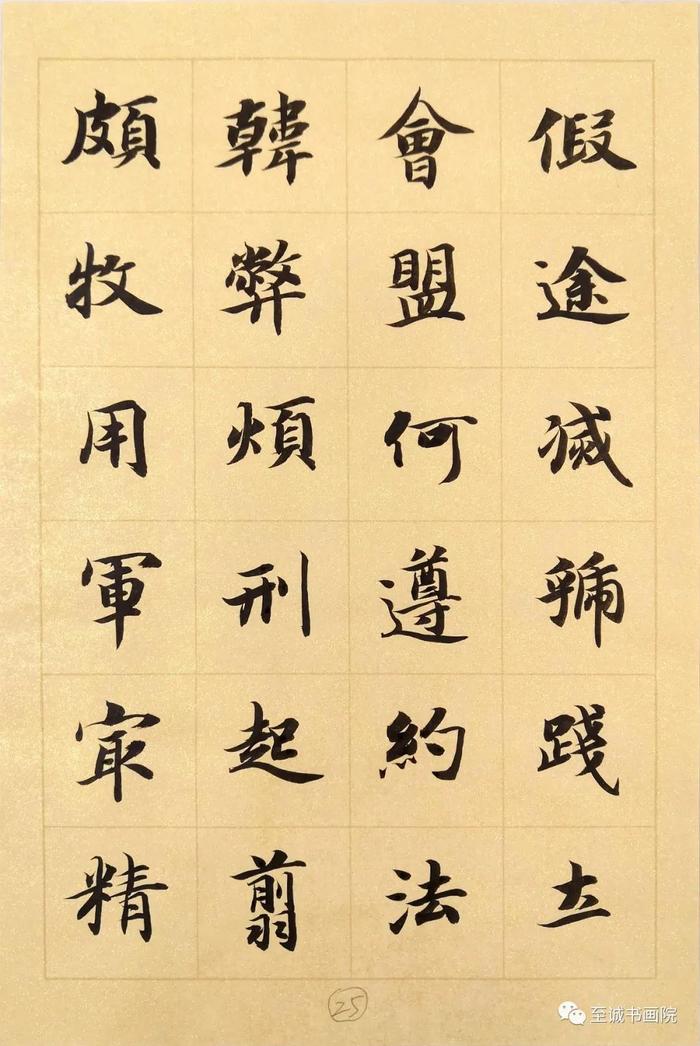 假途滅虢踐土
會盟何遵約法
韓弊煩刑起翦
頗牧用軍冣精
25
至诚书画院